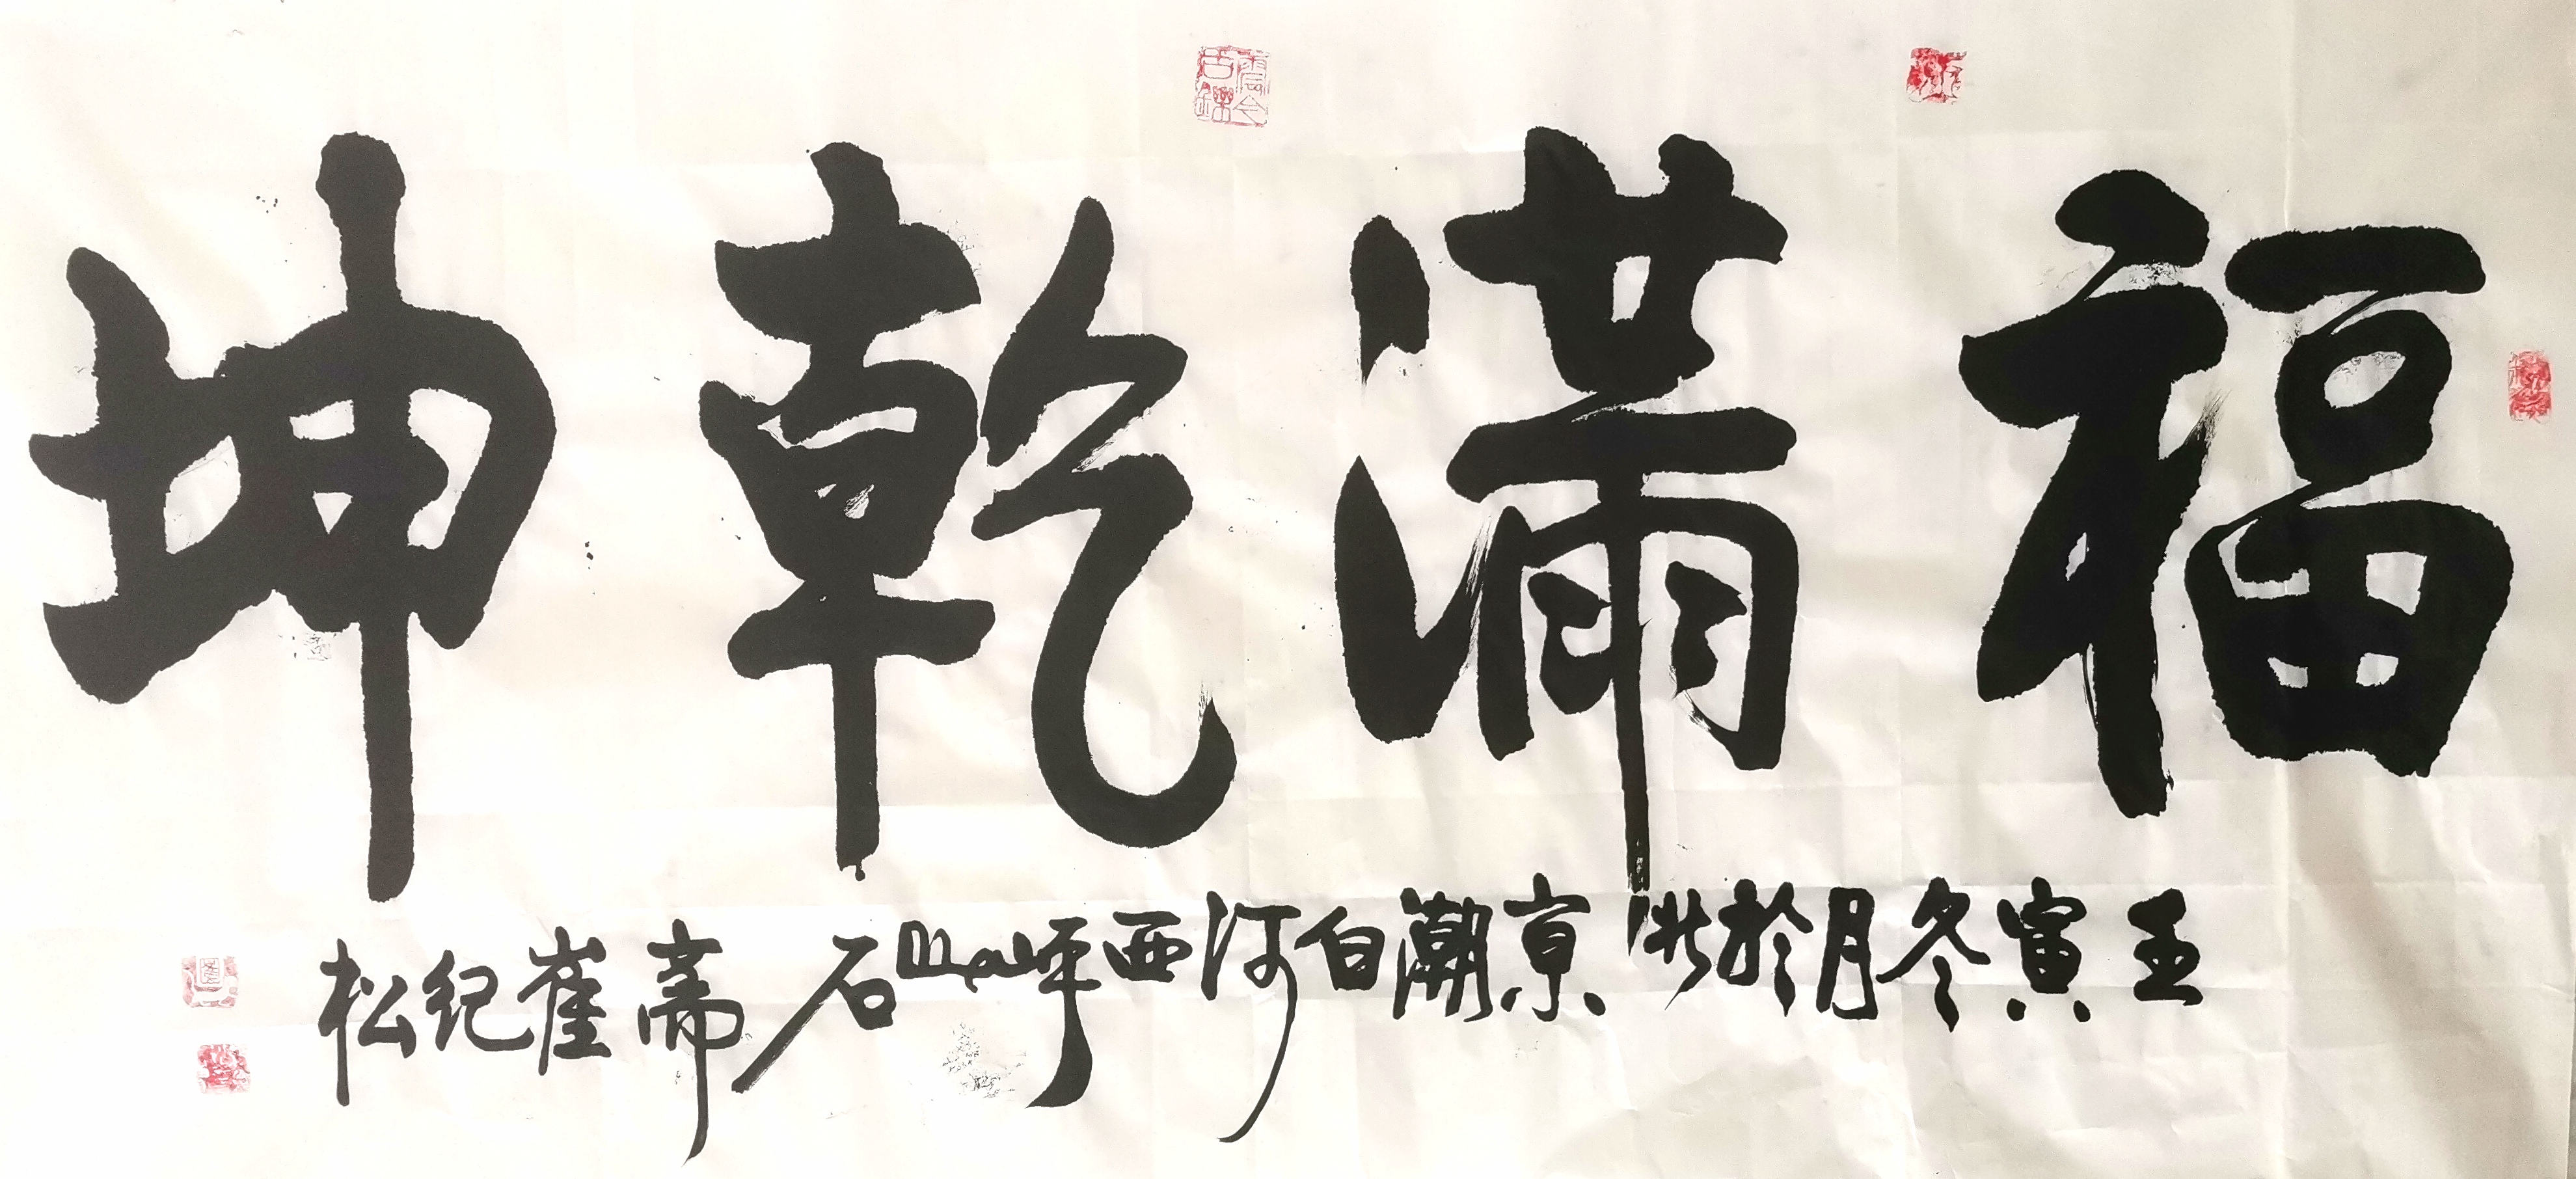 福满乾坤
壬寅冬月於北京潮白河西岸石斋崔纪松